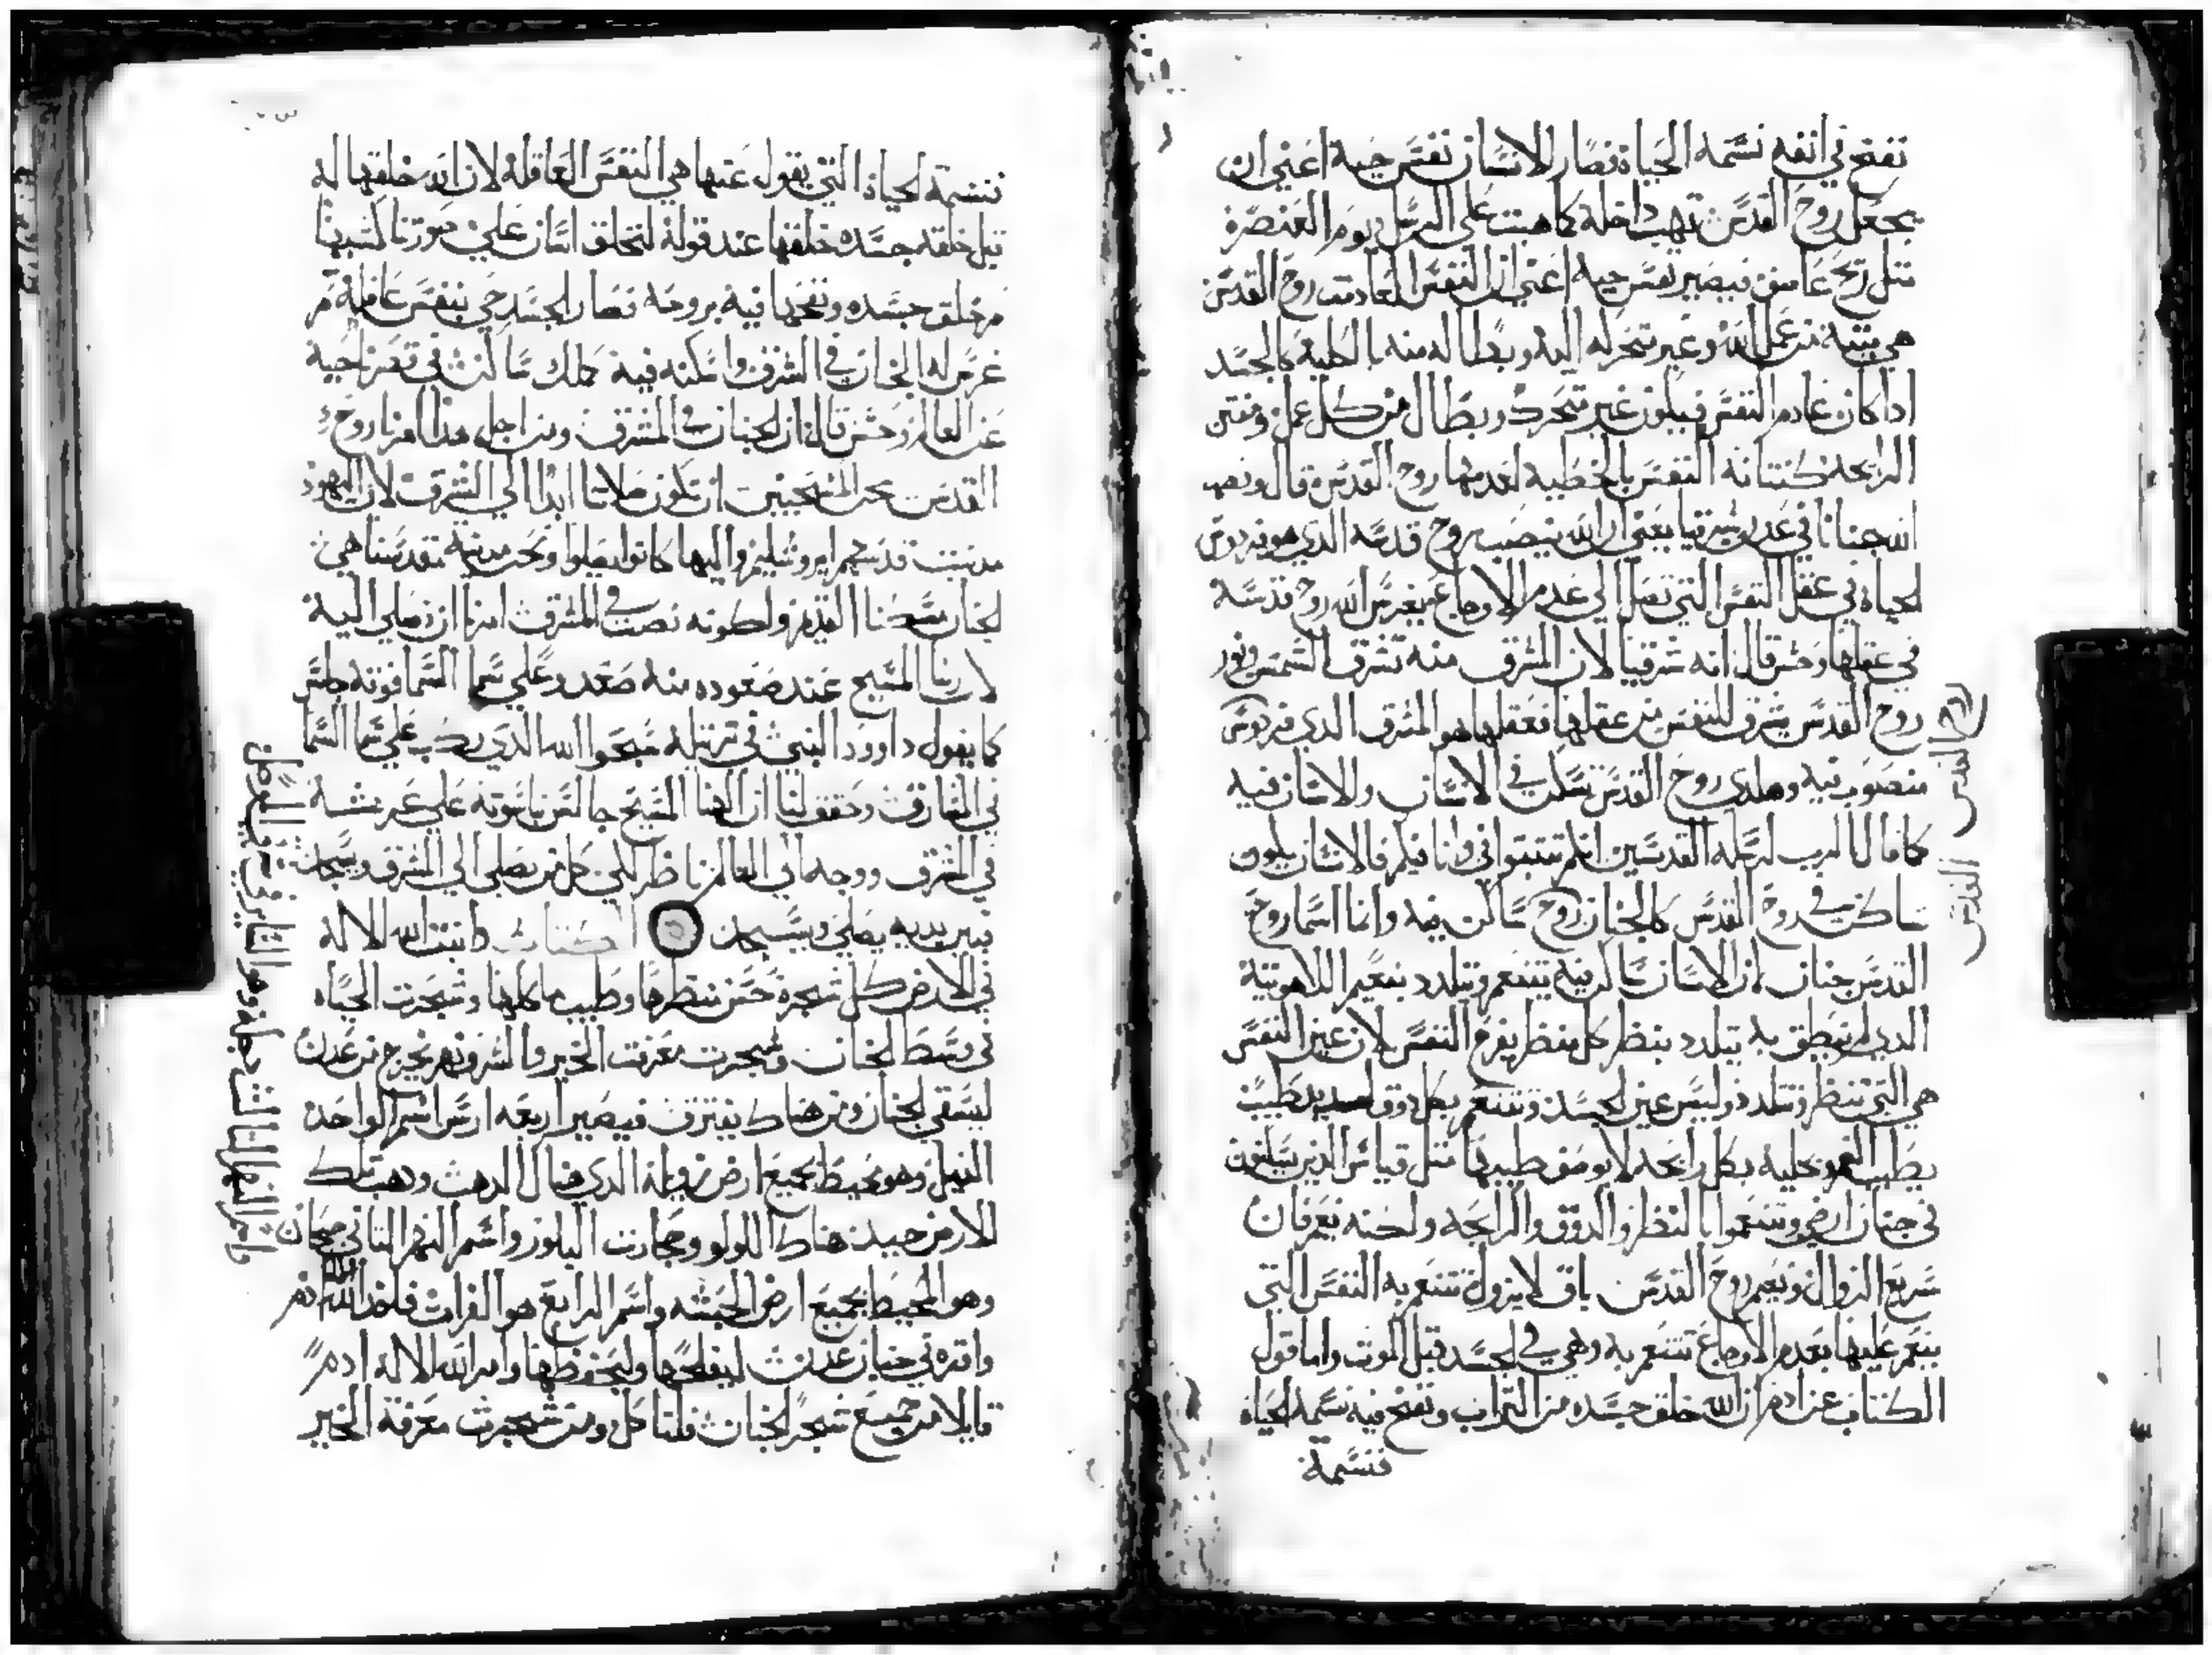 نفخ في انفه نسمة الحياة فصار الانسان نفس حية اعني ان
يجعل روح القدس تهب داخله كما هبت على الرسل يوم العنصرة
مثل ريح عاصف فيصير نفس حية اعني ان النفس العادمة روح القدس
هي ميتة من عمل الله وغير متحركه اليه وبطاله منه بالخطية كالجسد
اذا كان عادم النفس فيكون غير متحرك وبطال من كل عمل ومنتن
الرايحه كنتانة النفس بالخطيه لعدمها روح القدس قال ونصب
الله جنانا في عدن شرقيا يعني ان الله ينصب بروح قدسه الذي هو فردوس
الحياة في عقل النفس التي تصل الى عدم الاوجاع يغرس الله روح قدسه
في عقلها وحسن قال انه شرقيا لان المشرق منه تشرق الشمس ونور
روح القدس يشرق للنفس من عقلها فعقلها هو المشرق الذي فردوس
منصوب فيه وهكدى روح القدس تسكن في الانسان والانسان فيه
كما قال الرب لرسله القدسين انتم تتبتوا في وانا فيكم فالانسان يكون
ساكن في روح القدس كالجنان روح ساكن فيه وانما اسما روح
القدس جنان لان الانسان ساكن فيه يتنعم ويتلدد بنعيم اللاهوتية
الذي لم ينطق به يتلدد بنظر كل منظر يفرح النفس لان عين النفس
هي التي تنظر وتتلدد وليس عين الجسد وتتنعم بكل دوق لديد طيب
بطيب النعم وحليه بكل رايحه لا يوصف طيبها مثل قياس الذين يسكنون
في جنان ارضي ويتنعموا بالنظر والدوق والرايحه ولكنه نعيم فان
سريع الزوال ونعيم روح القدس باق لا يزول تتنعم به النفس التي
ينعم عليها بعدم الاوجاع تتنعم به وهي في الجسد قبل الموت واما قول
الكتاب عن ادم ان الله خلق جسده من التراب ونفخ فيه نسمة الحياة
فنسمة
فنسمة الحياة التي يقول عنها هي النفس العاقلة لان الله خلقها له
قبل خلقه جسده خلقها عند قوله لنخلق انسان علي صورتنا كشبهنا
ثم خلق جسده ونفخها فيه بروحه فصار الجسد حي بنفس عاقلة ثم
غرس له الجنان في الشرق واسكنه فيه كملك ساكن في قصر ناحية
عن العالم وحسن قال ان الجنان في المشرق ومن اجل هذا امرنا روح
القدس نحن المسيحيين ان تكون صلاتنا ابدا الي الشرق لان اليهود
مدينت قدسهم ايروشليم واليها كانوا يصلوا ونحن مدينة مقدسنا هي
الجنان مسكنا القديم ولكونه نصب في المشرق امرنا ان نصلي اليه
لان ربنا المسيح عند صعوده منه صعد وعلي سما السما فوقه جلس
كما يقول داوود النبي في ترتيله سبحوا الله الذي ركب علي سما السما
في المشارق وحقق لنا ان الهنا المسيح جالس بناسوته علي عرشه
في المشرق ووجهه الي العالم ناظر لكي كل من يصلي الي الشرق ويسجد
فبين يديه يصلي ويسجد الكتاب وانبت الله الاله
في الارض كل شجرة حسن منظرها وطيب ماكلها وشجرت الحياه
في وسط الجنان وشجرت معرفت الخير والشر ونهر يخرج من عدن
ليسقي الجنان ومن هناك يفترق فيصير اربعه ارس اسم الواحد
النيل وهو محيط بجميع ارض زويلة الذي هنال الدهب ودهب تلك
الارض جيد هناك اللولو وحجارت البلور واسم النهر التاني جيحان
وهو المحيط بجميع ارض الحبشه واسم الرابع هو الفرات فاخذ الله ادم
واقره في جنان عدن ليفلحها وليحفظها وامر الله الاله ادم
قايلا من جميع شجر الجنان فلتاكل ومن شجرت معرفة الخير